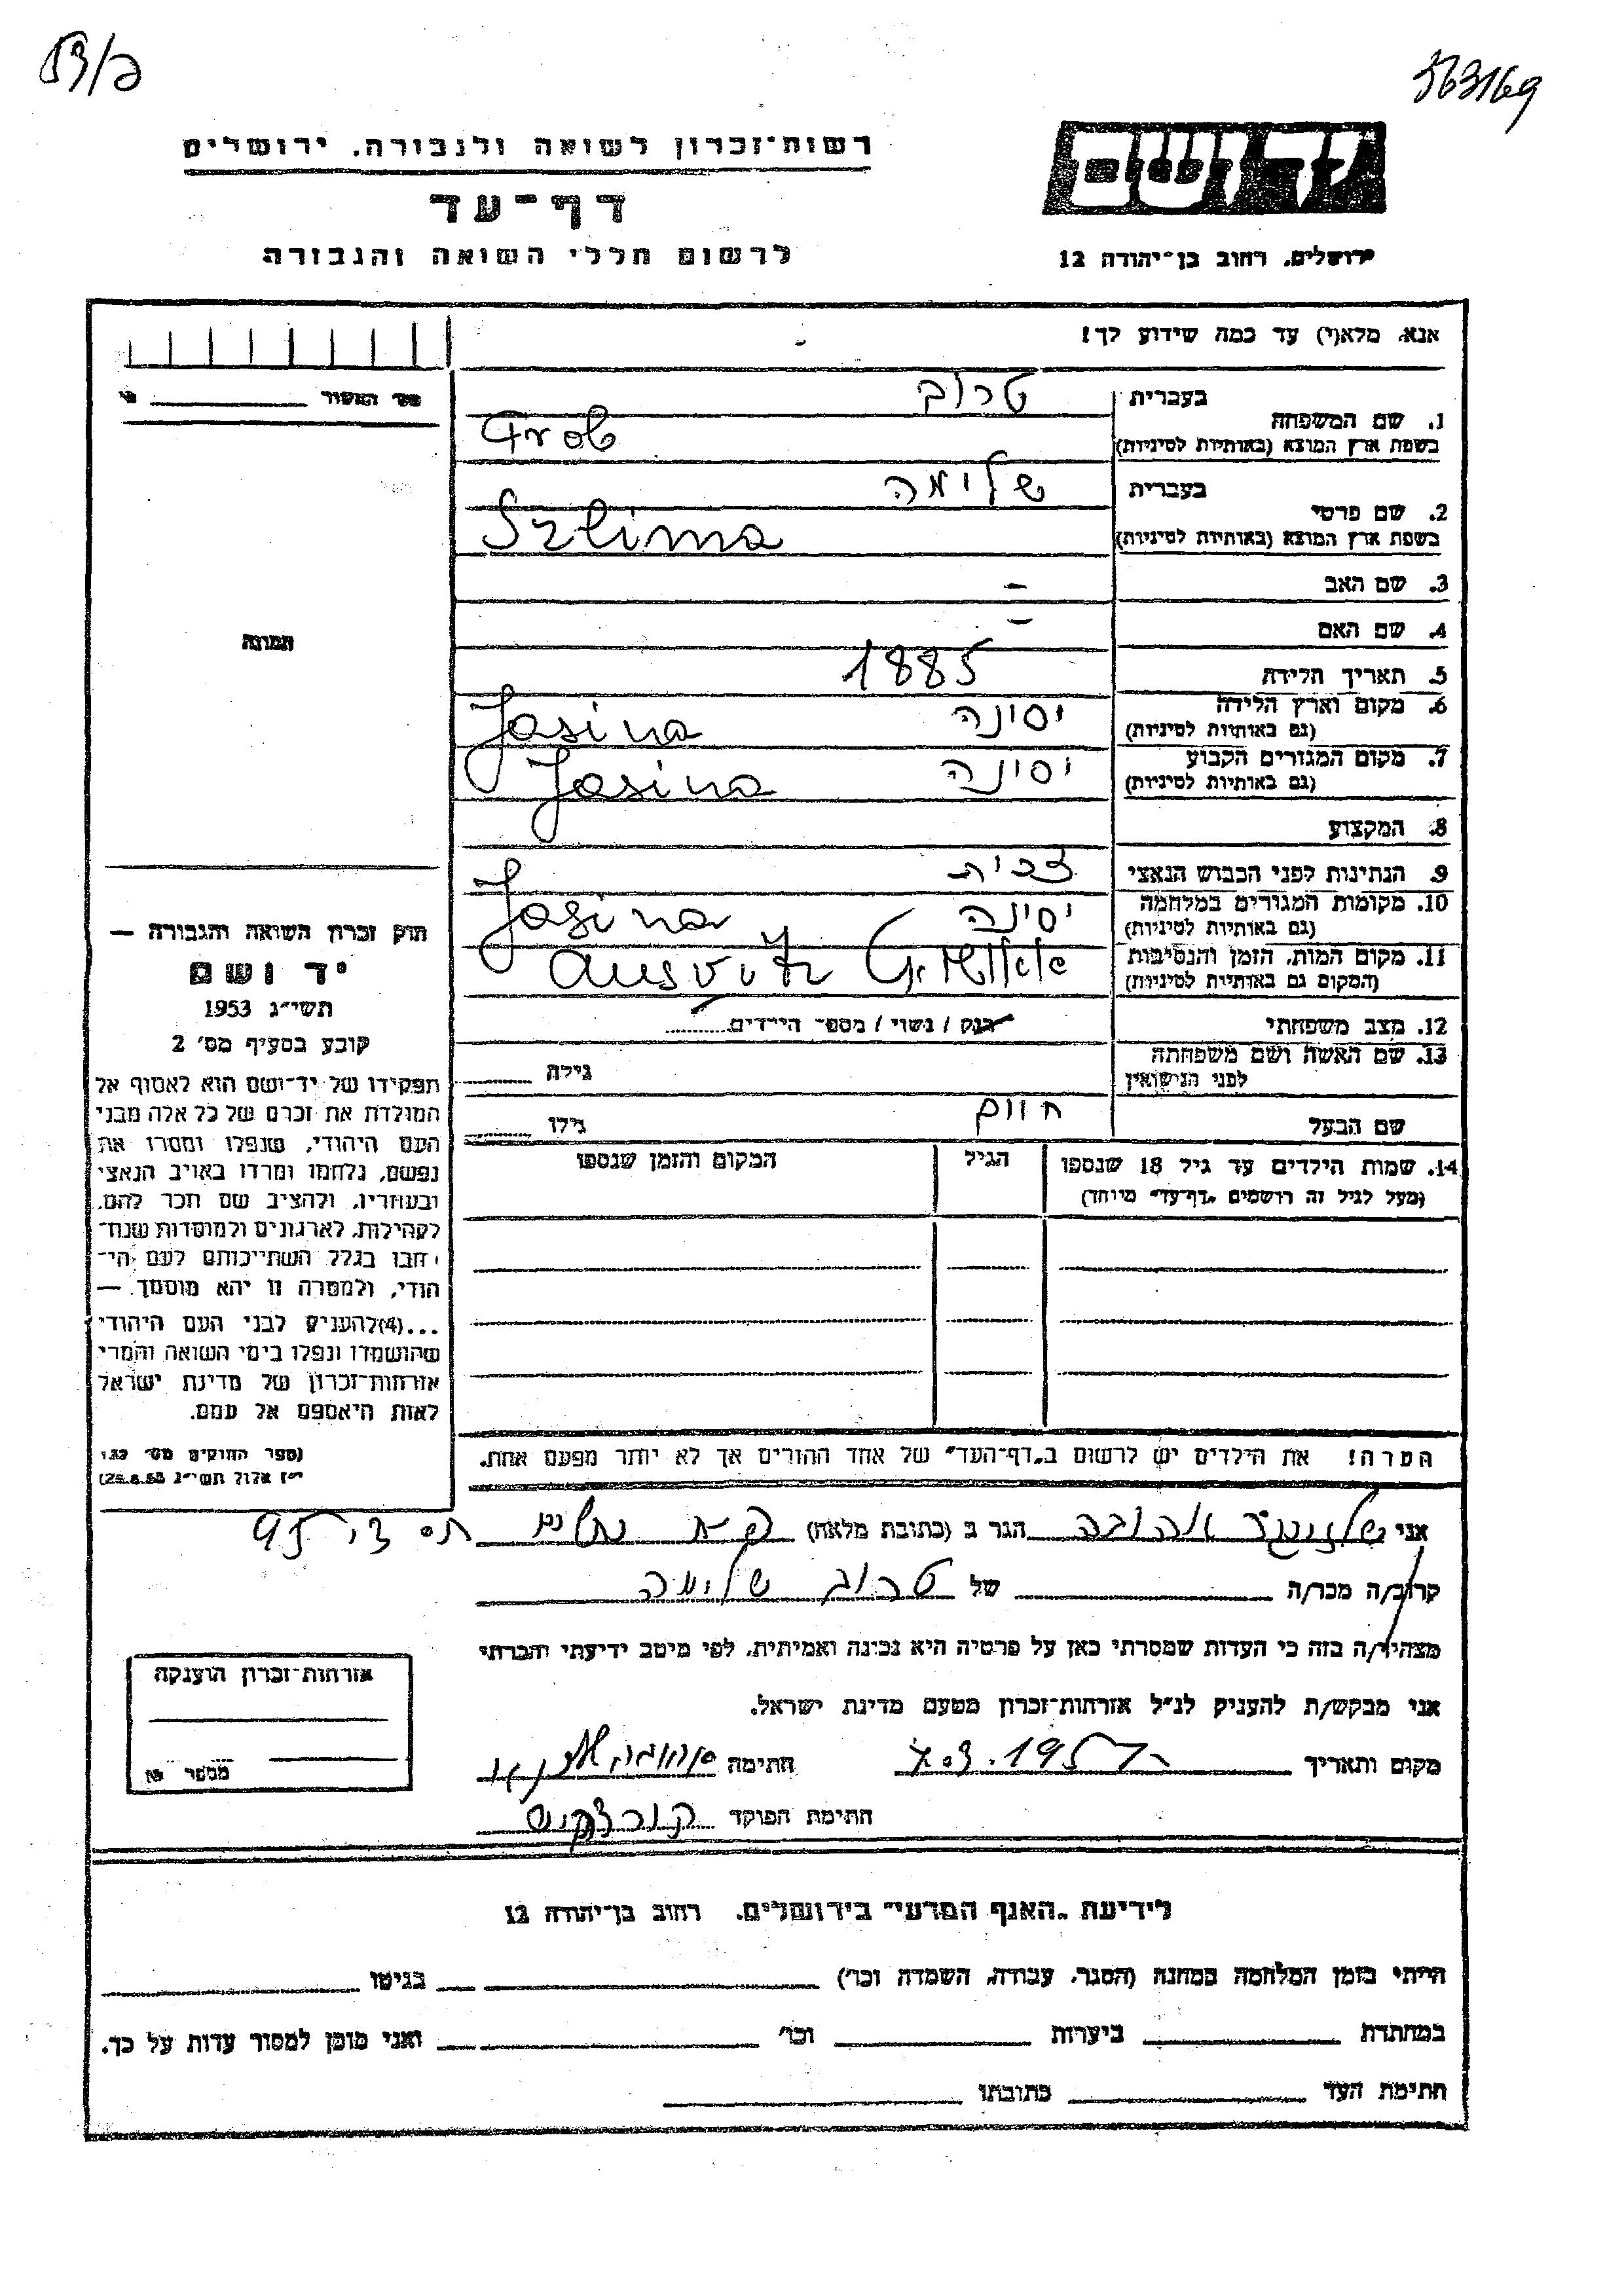 563169
רשות־זכרון לשואה ולגבורה, ירושלים
דף־עד
לרשום חללי השואה והגבורה
ידושם
ירושלים, רחוב בן־יהודה 12
אנא, מלא(י) עד כמה שידוע לך!
מס' האשור
1. שם המשפחה
בעברית טרוב
בשפת ארץ המוצא (באותיות לטיניות) Trob
2. שם פרטי
בעברית שלימה
בשפת ארץ המוצא (באותיות לטיניות) Szlima
3. שם האב -
4. שם האם -
5. תאריך הלידה 1885
6. מקום וארץ הלידה יסינה Jasina
(גם באותיות לטיניות)
7. מקום המגורים הקבוע יסינה Jasina
(גם באותיות לטיניות)
8. המקצוע
9. הנתינות לפני הכבוש הנאצי צכית
10. מקומות המגורים במלחמה יסינה Jasina
(גם באותיות לטיניות)
11. מקום המות, הזמן והנסיבות Ausvitz
(המקום גם באותיות לטיניות)
12. מצב משפחתי רוק / נשוי / מספר הילדים
13. שם האשה ושם משפחתה
לפני הנישואין גילה
שם הבעל חיים גילו
14. שמות הילדים עד גיל 18 שנספו הגיל המקום והזמן שנספו
(מעל לגיל זה רושמים „דף־עד" מיוחד)
הערה! את הילדים יש לרשום ב„דף־העד" של אחד ההורים אך לא יותר מפעם אחת.
תמונה
חוק זכרון השואה והגבורה —
יד ושם
תשי"ג 1953
קובע בסעיף מס' 2
תפקידו של יד־ושם הוא לאסוף אל
המולדת את זכרם של כל אלה מבני
העם היהודי, שנפלו ומסרו את
נפשם, נלחמו ומרדו באויב הנאצי
ובעוזריו, ולהציב שם וזכר להם,
לקהילות, לארגונים ולמוסדות שנח־
רבו בגלל השתייכותם לעם הי־
הודי, ולמטרה זו יהא מוסמך —
...(4) להעניק לבני העם היהודי
שהושמדו ונפלו בימי השואה והמרי
אזרחות־זכרון של מדינת ישראל
לאות היאספם אל עמם.
(ספר החוקים מס' 132
י"ז אלול תשי"ג 28.8.53)
אני שלזינגר אהובה הגר ב (כתובת מלאה) ת.ד. 95
קרוב/ה מכר/ה של טרוב שלימה
מצהיר/ה בזה כי העדות שמסרתי כאן על פרטיה היא נכונה ואמיתית, לפי מיטב ידיעתי והכרתי
אני מבקש/ת להעניק לנ"ל אזרחות־זכרון מטעם מדינת ישראל.
מקום ותאריך 7.3.195 חתימה
חתימת הפוקד
אזרחות־זכרון הוענקה
מספר
לידיעת „האגף המדעי" בירושלים, רחוב בן־יהודה 12
הייתי בזמן המלחמה במחנה (הסגר, עבודה, השמדה וכו') בגיטו
במחתרת ביערות וכו' ואני מוכן למסור עדות על כך.
חתימת העד כתובתו